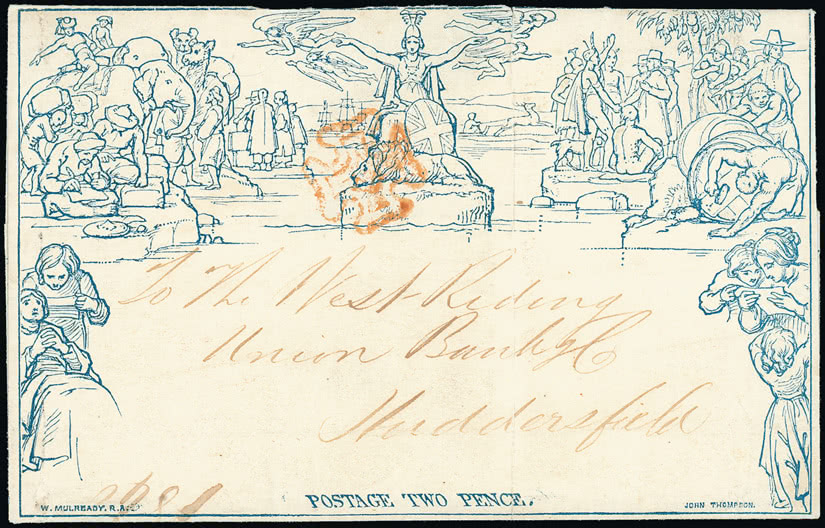 To The West Riding
Union Bankg C
Huddersfield
POSTAGE TWO PENCE.
W. MULREADY. R.A.
JOHN THOMPSON.